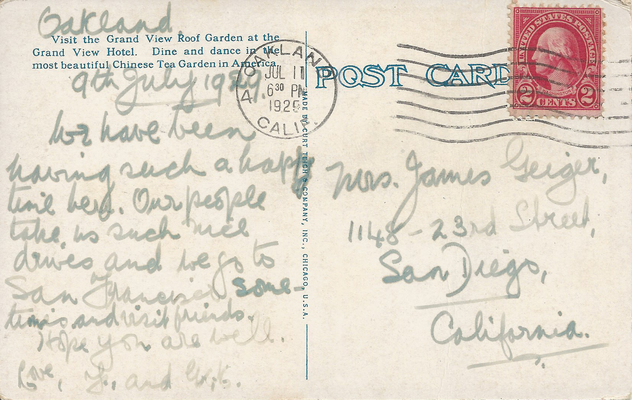 Oakland,
Visit the Grand View Roof Garden at the
Grand View Hotel. Dine and dance in the
most beautiful Chinese Tea Garden in America.
9th July 1929.
We have been
having such a happy
time here. Our people
take us such nice
drives and we go to
San Francisco some-
times and visit friends.
Hope you are well.
Love, and
MADE BY CURT TEICH & COMPANY, INC., CHICAGO, U.S.A.
OAKLAND
JUL 11
6 30 PM
CALIF.
POST CARD
UNITED STATES POSTAGE
2 CENTS 2
Mrs. James Geiger,
1148 - 23rd Street,
San Diego,
California.